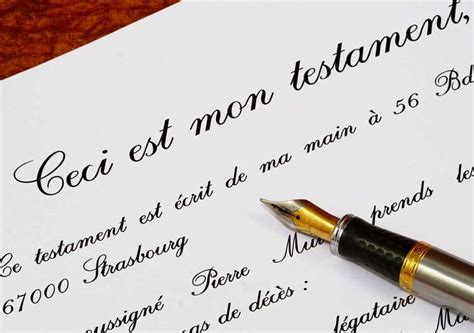 Ceci est mon testament,
Ce testament est écrit de ma main à 56 Bd
67000 Strasbourg
oussigné Pierre Mu prends les
as de décès :
légataire Ma